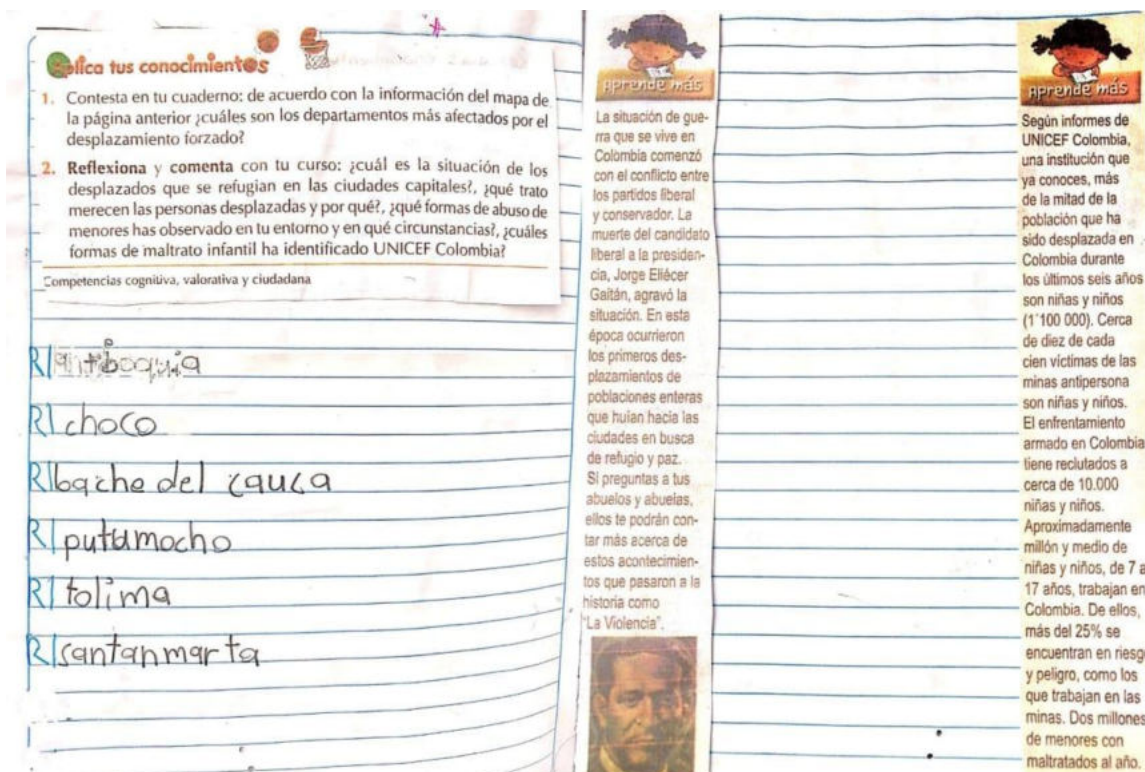 Aplica tus conocimientos
1. Contesta en tu cuaderno: de acuerdo con la información del mapa de
la página anterior ¿cuáles son los departamentos más afectados por el
desplazamiento forzado?
2. Reflexiona y comenta con tu curso: ¿cuál es la situación de los
desplazados que se refugian en las ciudades capitales?, ¿qué trato
merecen las personas desplazadas y por qué?, ¿qué formas de abuso de
menores has observado en tu entorno y en qué circunstancias?, ¿cuáles
formas de maltrato infantil ha identificado UNICEF Colombia?
Competencias cognitiva, valorativa y ciudadana
R/ antioquia
R/ choco
R/ bache del cauca
R/ putumocho
R/ tolima
R/ santanmarta
Aprende más
La situación de gue-
rra que se vive en
Colombia comenzó
con el conflicto entre
los partidos liberal
y conservador. La
muerte del candidato
liberal a la presiden-
cia, Jorge Eliécer
Gaitán, agravó la
situación. En esta
época ocurrieron
los primeros des-
plazamientos de
poblaciones enteras
que huían hacia las
ciudades en busca
de refugio y paz.
Si preguntas a tus
abuelos y abuelas,
ellos te podrán con-
tar más acerca de
estos acontecimien-
tos que pasaron a la
historia como
"La Violencia".
Aprende más
Según informes de
UNICEF Colombia,
una institución que
ya conoces, más
de la mitad de la
población que ha
sido desplazada en
Colombia durante
los últimos seis años
son niñas y niños
(1´100 000). Cerca
de diez de cada
cien víctimas de las
minas antipersona
son niñas y niños.
El enfrentamiento
armado en Colombia
tiene reclutados a
cerca de 10.000
niñas y niños.
Aproximadamente
millón y medio de
niñas y niños, de 7 a
17 años, trabajan en
Colombia. De ellos,
más del 25% se
encuentran en riesgo
y peligro, como los
que trabajan en las
minas. Dos millones
de menores con
maltratados al año.